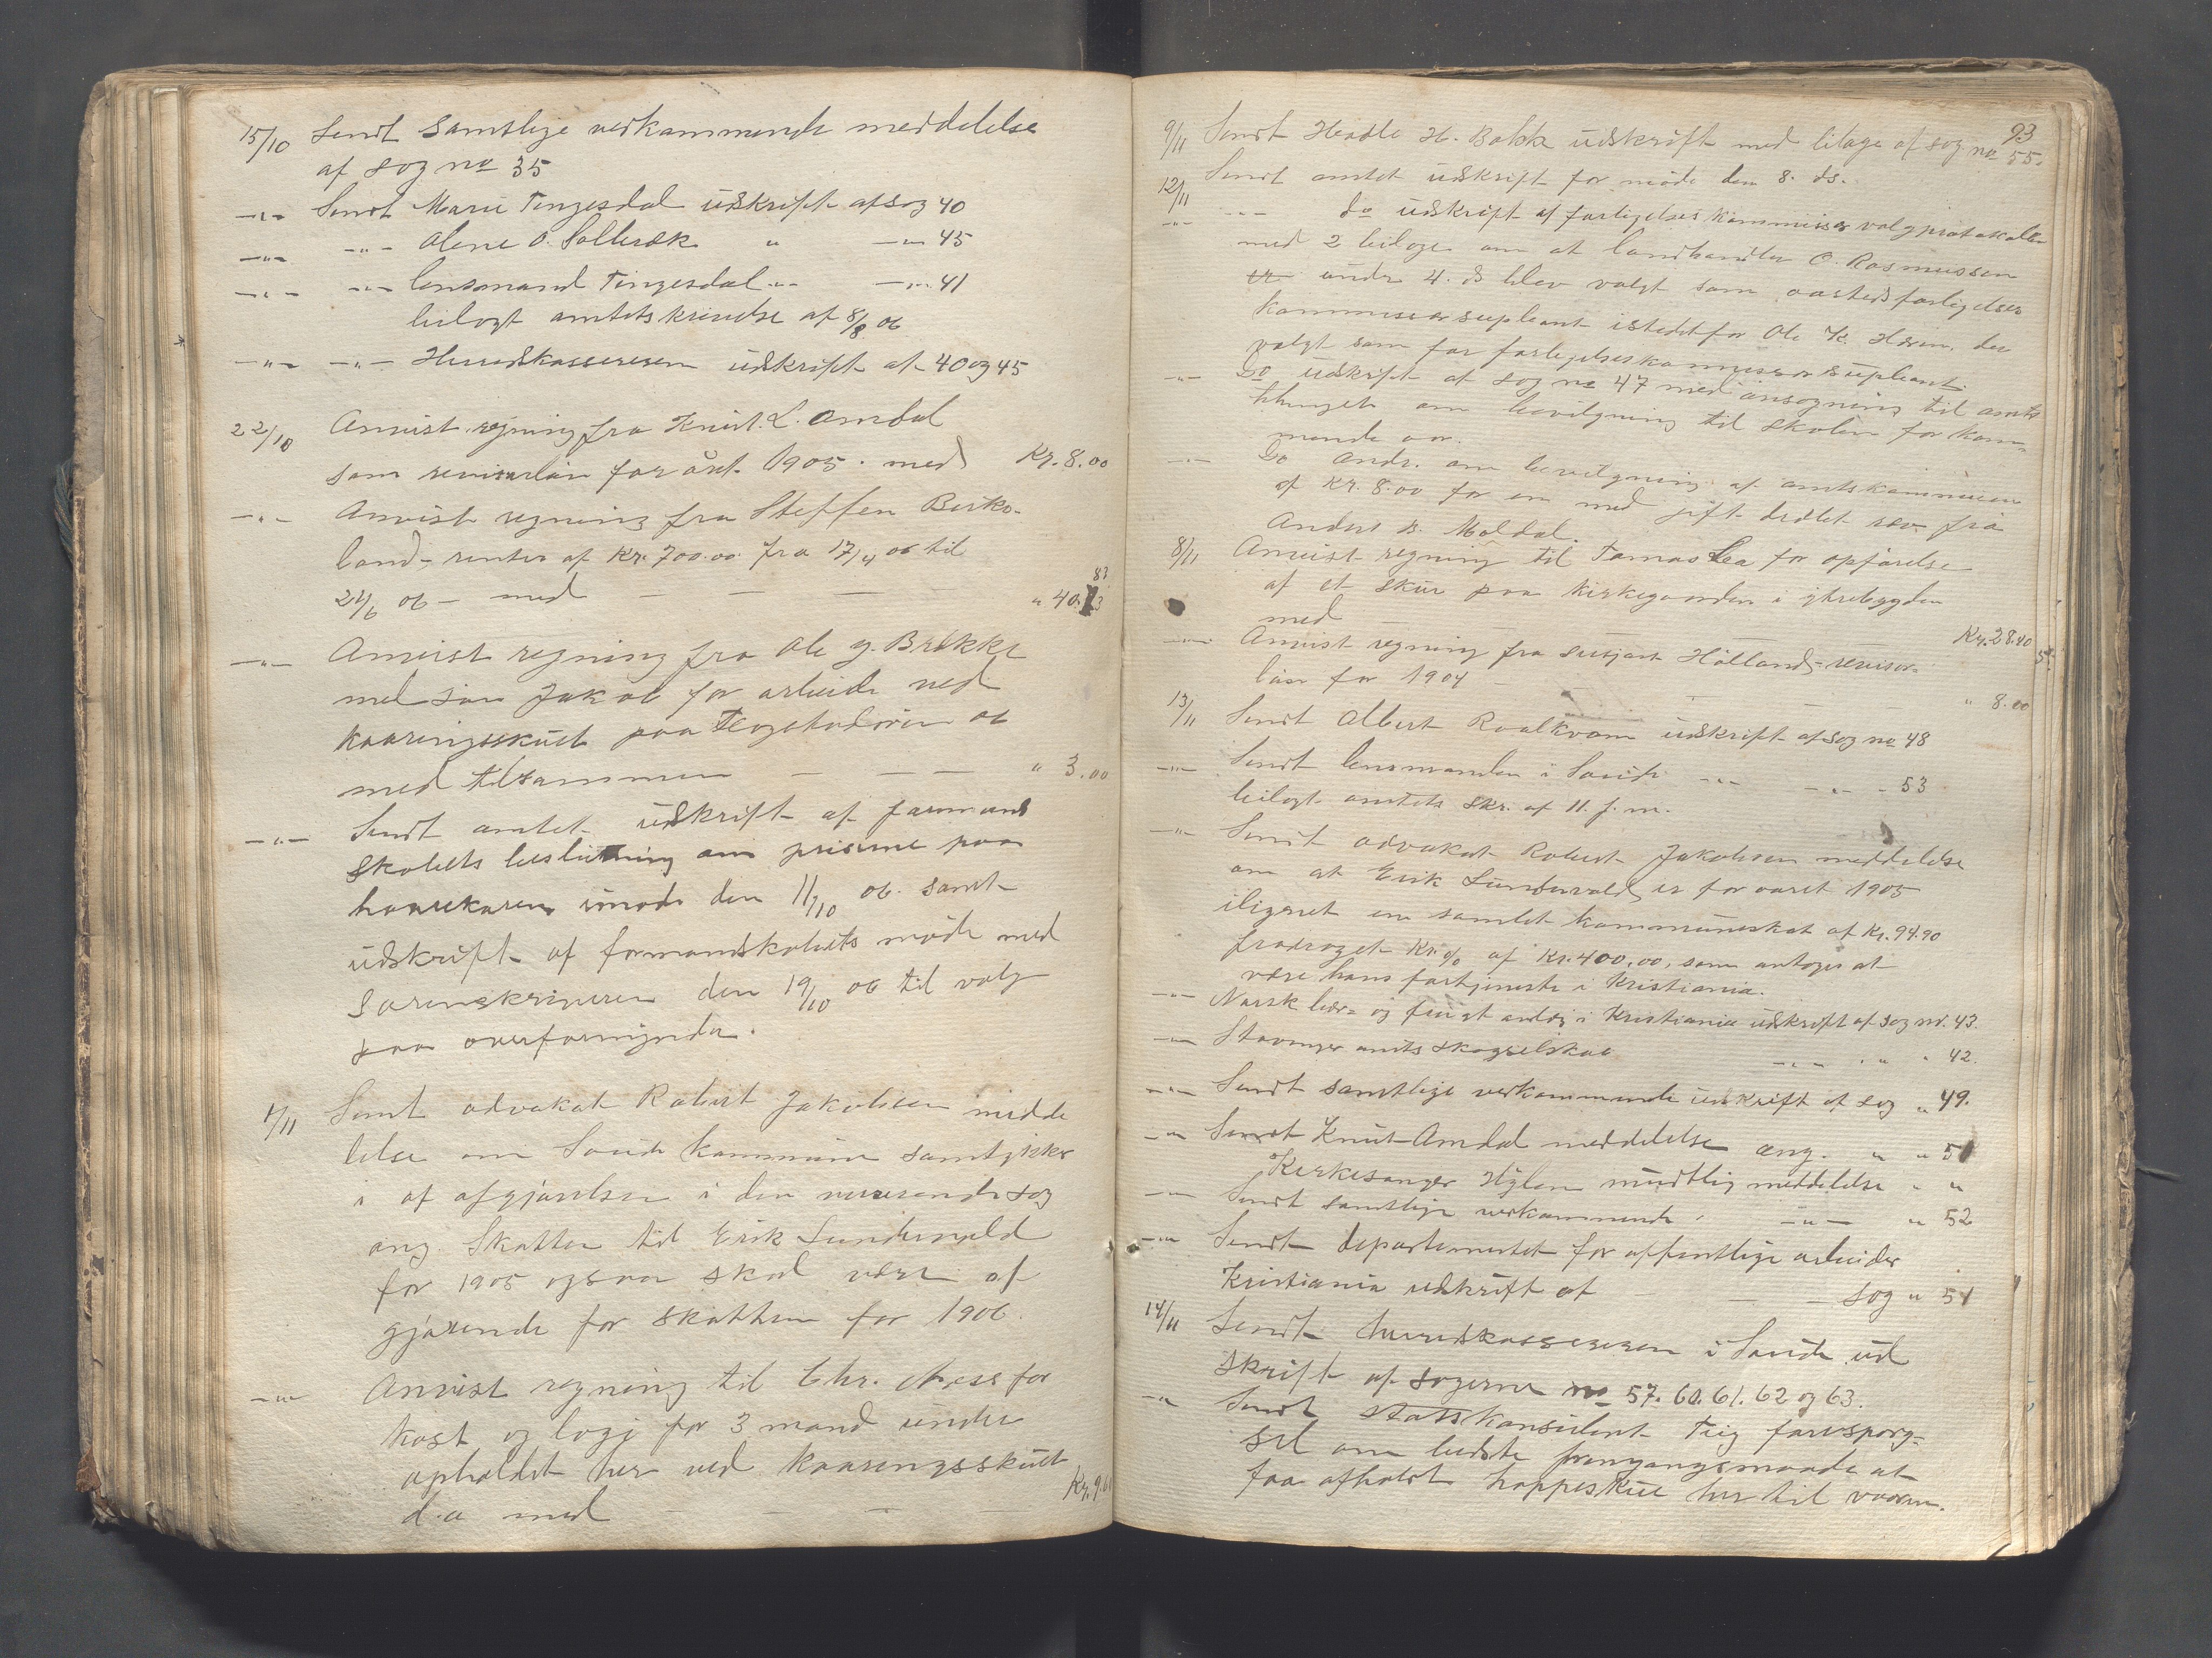 15/10 Sendt samtlige vedkommende meddelelse
af sog no 35
-"- Sendt Marie Tengesdal udskrift af sog 40
-"- -"- Olene O. Sollerøk " -"- 45
-"- -"- lensmand Tengesdal -"- -"- 41
bilagt amtets skrivelse af 8/8 06
-"- -"- Herredskassereren udskrift af 40 og 45
22/10 Anvist regning fra Knut L. Amdal
som revisorløn for året 1905 med Kr. 8.00
-"- Anvist regning fra Steffen Birke-
land, renter af Kr. 700.00 fra 17/4 06 til
21/6 06 – med — — — " 40.83
-"- Anvist regning fra Ole G. Brekke
med søn Jakob for arbeide ved
kaaringsskuet paa 06
med tilsammen — — — " 3.00
-"- Sendt amtet udskrift af formand
skabets beslutning om priserne paa
møde den 11/10 06. samt
udskrift af formandskabets møde med
Sorenskriveren den 19/10 06 til valg
paa overformynder.
1/11 Sendt advokat Robert Jakobsen medde
lelse om Saude kommune samtykker
i at afgjørelsen i den nuværende sag
ang. Skatten til Erik Sundervald
for 1905 ogsaa skal være af
gjørende for skatten for 1906.
-"- Anvist regning til Chr. Næss for
kost og logi for 3 mand under
opholdet her ved kaaringsskuet
d.a med — — Kr. 9.60
93
9/11 Sendt Headle H. Bakk udskrift med bilage af sog no 55.
12/11 Sendt amtet udskrift for møde den 8. ds.
-"- -"- do udskrift af forligelseskommissær valgprotokollen
med 2 bilage om at landhandler O. Rasmussen
under 4. ds blev valgt som aasteds forligelses
kommissærsupleant istedetfor Ole K. Høien, der
valgt som for forligelseskommissærsupleant.
-"- Do udskrift af sog no 47 med ansøgning til amts
thinget om bevilgning til skolen for kom-
mende aar.
-"- Do andr. om bevilgning af amtskommunen
af Kr. 8.00 for en med gift dræbt ræv fra
Anders B. Moldal.
8/11 Anvist regning til Tomas Lea for opførelse
af et skur paa kirkegaarden i ytrebygden
med — — — Kr. 28.40
-"- Anvist regning fra Hølland, revisor-
løn for 1904 — — — " 8.00
13/11 Sendt Albert Roalkvam udskrift af sog no 48
-"- Sendt lensmanden i Saude -"- -"- - 53
bilagt amtets skr. af 11. f. m.
-"- Sendt advokat Robert Jakobsen meddelelse
om at Erik Sundervald er for aaret 1905
ilignet en samlet kommuneskat af Kr. 94.90
fradraget Kr. % af Kr. 400.00, som antages at
være hans fortjeneste i Kristiania.
-"- Norsk bær- og frugt anlæg i Kristiania udskrift af sog nr. 43.
-"- Stavanger amts skogselskab -"- . " " 42.
-"- Sendt samtlige vedkommende udskrift af sog " 49.
-"- Sendt Knut Amdal meddelelse ang. " " 51
Kirkesanger Hylen mundtlig meddelelse " "
-"- Sendt samtlige vedkommende -"- " 52
-"- Sendt departementet for offentlige arbeider
Kristiania udskrift af — — sog " 51
14/11 Sendt herredskassereren i Saude ud
skrift af sogerne no 57. 60. 61. 62 og 63.
-"- Sendt statskonsulent Teig forespørg-
sel om bedste fremgangsmaade at
faa afholdt hoppeskue her til vaaren.